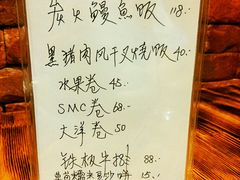 炭火鳗鱼饭 118.-
黑猪肉风干叉烧饭 40.-
水果卷 45.-
SMC卷 68.-
大洋卷 50
铁板牛排 88.-
15.-